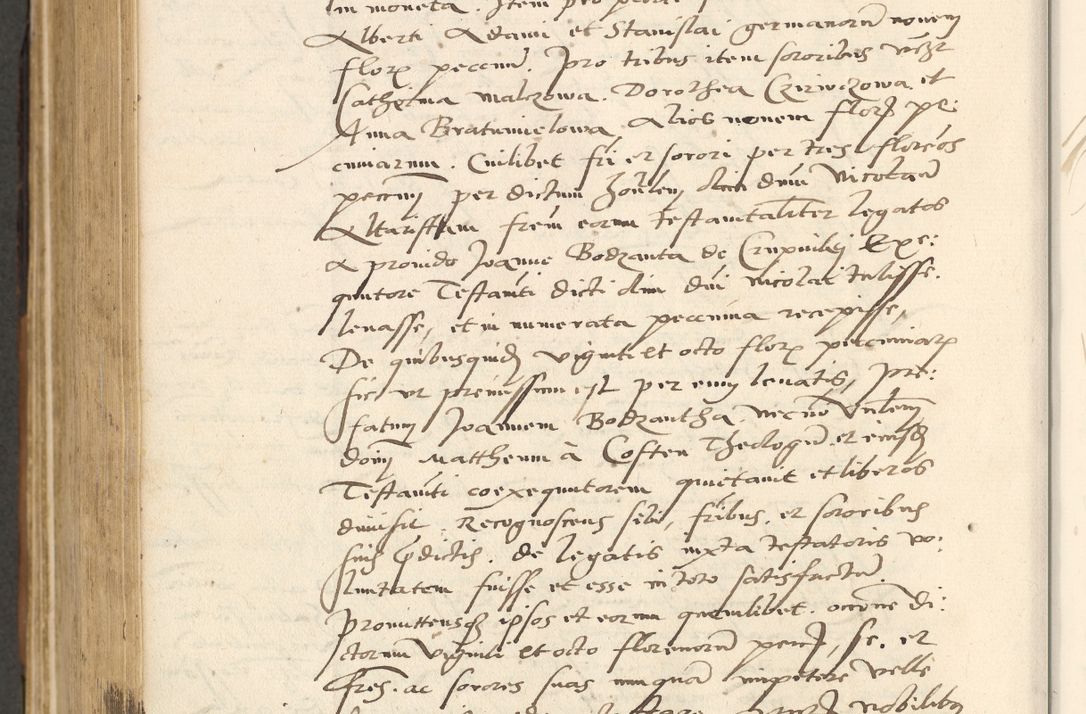 in moneta. Item pro
Alberti Adami et Stanislai germanorū novem
flor pecun. Pro tribus item sororibus vdzt
Catherina Malczowa. Dorothea Czirwczowa. et
Anna Bratumielowa. Alios novem flor pe:
cuniarum. Cuilibet fri et sorori per tres florenos
per dictum olim dnm Nicolaū
Altaristam frem eorum testamtaliter legatos
A provido Joanne Bodzanta de Exe:
qutore Testamti dicti olim dni Nicolai tulisse.
levasse, et in numerata peccunia recepisse,
De quibusquidē viginti et octo flor peccuniarp
sic ut premissum est per eum levatis, Pre:
fatum Joannem Bodzantha necnō
dōnū Mattheum à Costen Theologū et eiusdē
Testamti coexequtorem quietavit et liberos
dimisit. Recognoscens sibi, fribus. et sororibus
suis p̄dictis. de legatis iuxta testatoris vo:
luntatem fuisse et esse in toto satisfactū.
Promittensqz ipsos et eorum quemlibet. di:
ctorum viginti et octo florenorū se. et
fres. ac sorores suas nunquā impetere velle
nobilibus